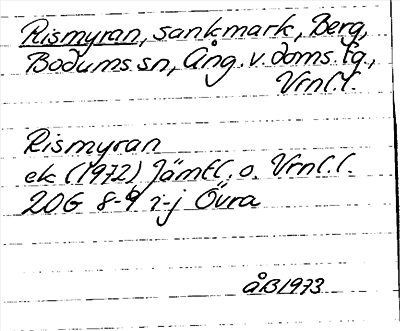 Rismyran, sankmark, Berg,
Bodums sn, Ång. v. doms. fg.,
Vrnl.l.
Rismyran
ek (1972) Jämtl. o. Vrnl.l.
20G 8-9 i-j Övra
ÅB 1973